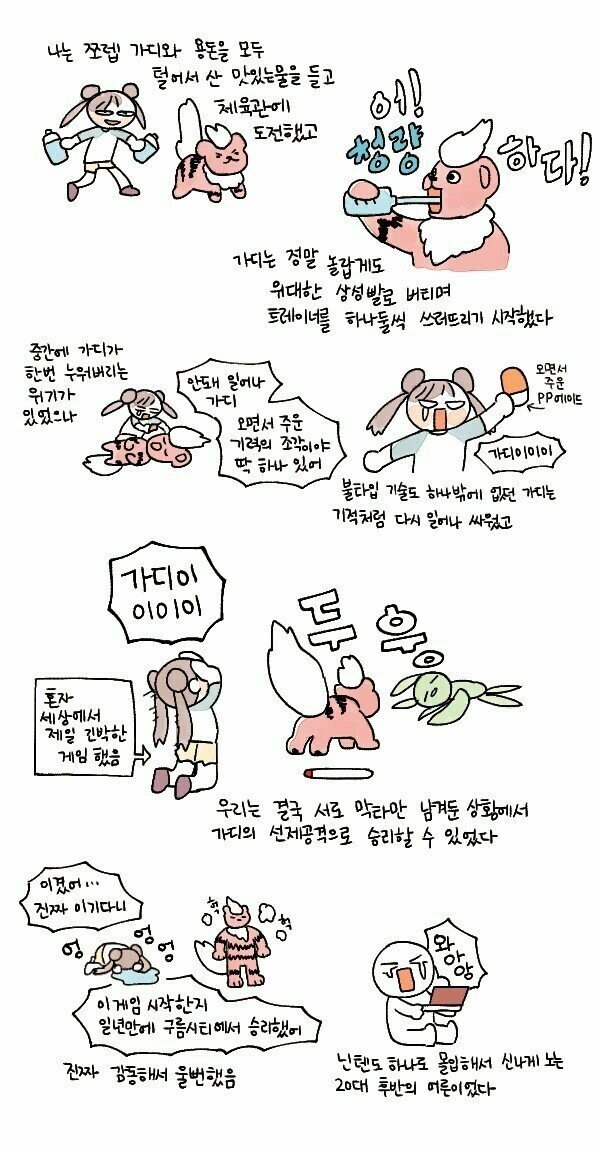 나는 쪼렙 가디와 용돈을 모두
털어서 산 맛있는물을 들고
체육관에
도전했고
어!
청량
하다!
가디는 정말 놀랍게도
위대한 상성빨로 버티며
트레이너를 하나둘씩 쓰러뜨리기 시작했다
중간에 가디가
한번 누워버리는
위기가
있었으나
안돼 일어나
가디
오면서 주운
기력의 조각이야
딱 하나 있어
오면서
주운
PP에이드
가디이이이
불타입 기술도 하나밖에 없던 가디는
기적처럼 다시 일어나 싸웠고
가디이
이이이
두웅
혼자
세상에서
제일 긴박한
게임 했음
우리는 결국 서로 막타만 남겨둔 상황에서
가디의 선제공격으로 승리할 수 있었다
이겼어...
진짜 이기다니
엉
엉엉
헉
헉
이게임 시작한지
일년만에 구름시티에서 승리했어
진짜 감동해서 울뻔했음
와
아
앙
닌텐도 하나로 몰입해서 신나게 노는
20대 후반의 어른이었다